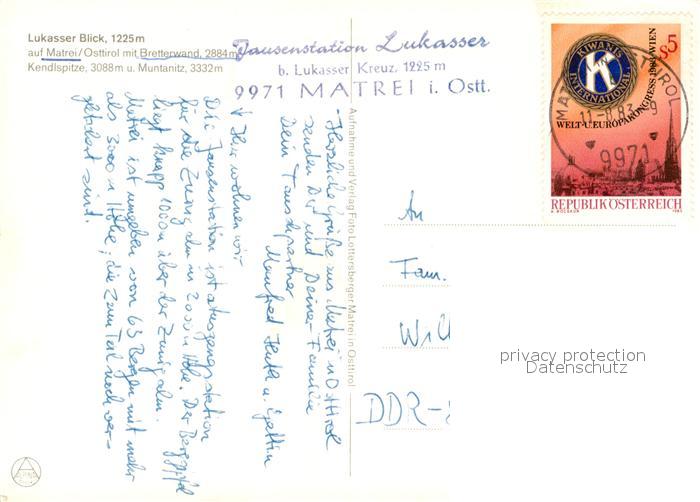 Lukasser Blick, 1225m
auf Matrei/Osttirol mit Bretterwand, 2884m
Kendlspitze, 3088m u. Muntanitz, 3332m
Jausenstation Lukasser
b. Lukasser Kreuz, 1225 m
9971 MATREI i. Ostt.
KIWANIS
INTERNATIONAL
K
S5
WELT-U. EUROPAKONGRESS 1983 WIEN
REPUBLIK ÖSTERREICH
1983
11-8.83-9
9971
Aufnahme und Verlag Foto Lottersberger, Matrei in Osttirol
- Herzliche Grüße aus Matrei in Osttirol
senden Dir und Deiner Familie
Dein Tauschpartner
Manfred u. Gattin
Hier wohnen wir
Die Jausenstation ist Ausgangsstation
für die Zunig Alm in 2000 m Höhe. Der Berggipfel
liegt knapp 1000 m über der Zunig Alm.
Matrei ist umgeben von 63 Bergen mit mehr
als 3000 m Höhe, die zum Teil noch ver-
gletschert sind.
An
Fam.
Will
DDR-
privacy protection
Datenschutz